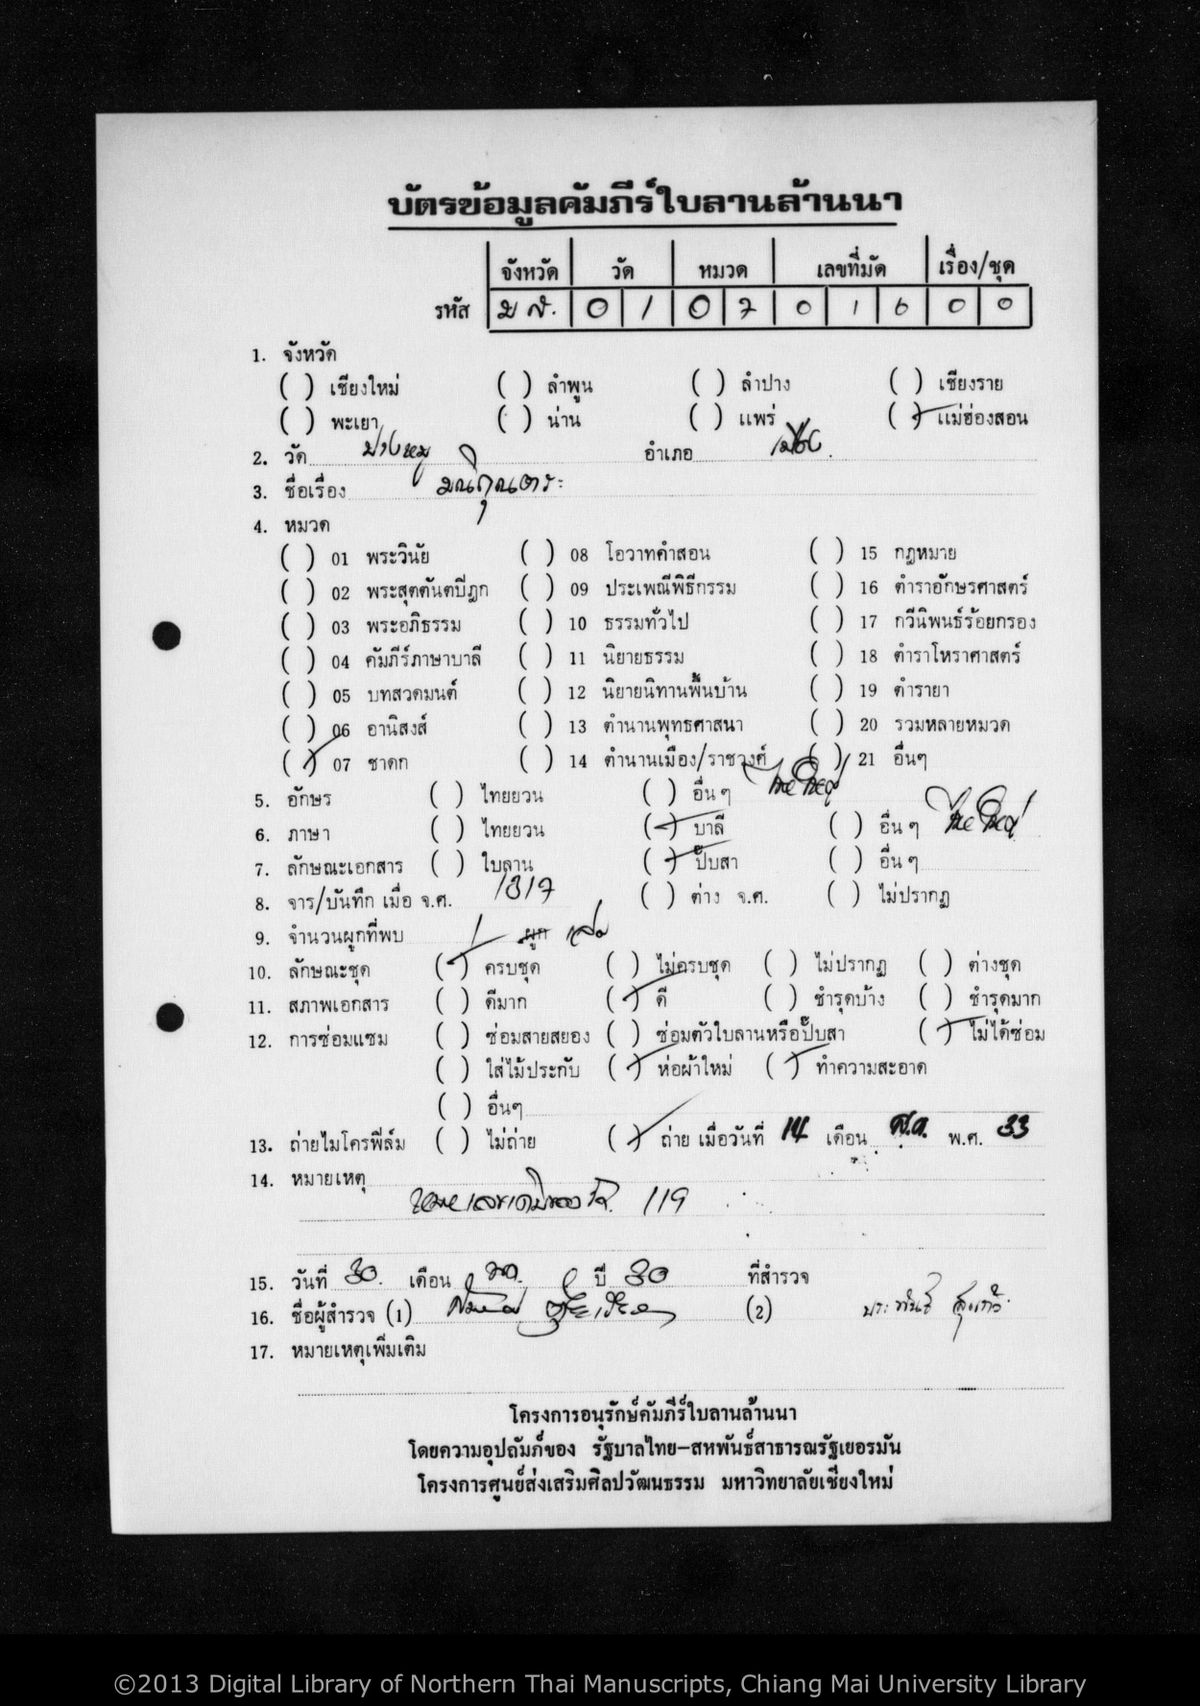 บัตรข้อมูลคัมภีร์ใบลานล้านนา
จังหวัด วัด หมวด เลขที่มัด เรื่อง/ชุด
รหัส ม ส. 0 1 0 7 0 1 6 0 0
1. จังหวัด
( ) เชียงใหม่ ( ) ลำพูน ( ) ลำปาง ( ) เชียงราย
( ) พะเยา ( ) น่าน ( ) แพร่ (✓) แม่ฮ่องสอน
2. วัด ปางหมู อำเภอ เมือง
3. ชื่อเรื่อง
4. หมวด
( ) 01 พระวินัย ( ) 08 โอวาทคำสอน ( ) 15 กฎหมาย
( ) 02 พระสุตตันตปิฎก ( ) 09 ประเพณีพิธีกรรม ( ) 16 ตำราอักษรศาสตร์
( ) 03 พระอภิธรรม ( ) 10 ธรรมทั่วไป ( ) 17 กวีนิพนธ์ร้อยกรอง
( ) 04 คัมภีร์ภาษาบาลี ( ) 11 นิยายธรรม ( ) 18 ตำราโหราศาสตร์
( ) 05 บทสวดมนต์ ( ) 12 นิยายนิทานพื้นบ้าน ( ) 19 ตำรายา
( ) 06 อานิสงส์ ( ) 13 ตำนานพุทธศาสนา ( ) 20 รวมหลายหมวด
(✓) 07 ชาดก ( ) 14 ตำนานเมือง/ราชวงศ์ ( ) 21 อื่นๆ
5. อักษร ( ) ไทยยวน ( ) อื่น ๆ ไทยใหญ่
6. ภาษา ( ) ไทยยวน (✓) บาลี ( ) อื่น ๆ ไทยใหญ่
7. ลักษณะเอกสาร ( ) ใบลาน (✓) ปั๊บสา ( ) อื่น ๆ
8. จาร/บันทึก เมื่อ จ.ศ. 1317 ( ) ต่าง จ.ศ. ( ) ไม่ปรากฏ
9. จำนวนผูกที่พบ 1 ผูก เล่ม
10. ลักษณะชุด (✓) ครบชุด ( ) ไม่ครบชุด ( ) ไม่ปรากฏ ( ) ต่างชุด
11. สภาพเอกสาร ( ) ดีมาก (✓) ดี ( ) ชำรุดบ้าง ( ) ชำรุดมาก
12. การซ่อมแซม ( ) ซ่อมสายสยอง ( ) ซ่อมตัวใบลานหรือปั๊บสา (✓) ไม่ได้ซ่อม
( ) ใส่ไม้ประกับ (✓) ห่อผ้าใหม่ (✓) ทำความสะอาด
( ) อื่นๆ
13. ถ่ายไมโครฟิล์ม ( ) ไม่ถ่าย (✓) ถ่าย เมื่อวันที่ 14 เดือน ส.ค. พ.ศ. 33
14. หมายเหตุ
119
15. วันที่ 30. เดือน ปี 30 ที่สำรวจ
16. ชื่อผู้สำรวจ (1) (2) ประพันธ์ สุแก้ว
17. หมายเหตุเพิ่มเติม
โครงการอนุรักษ์คัมภีร์ใบลานล้านนา
โดยความอุปถัมภ์ของ รัฐบาลไทย–สหพันธ์สาธารณรัฐเยอรมัน
โครงการศูนย์ส่งเสริมศิลปวัฒนธรรม มหาวิทยาลัยเชียงใหม่
©2013 Digital Library of Northern Thai Manuscripts, Chiang Mai University Library